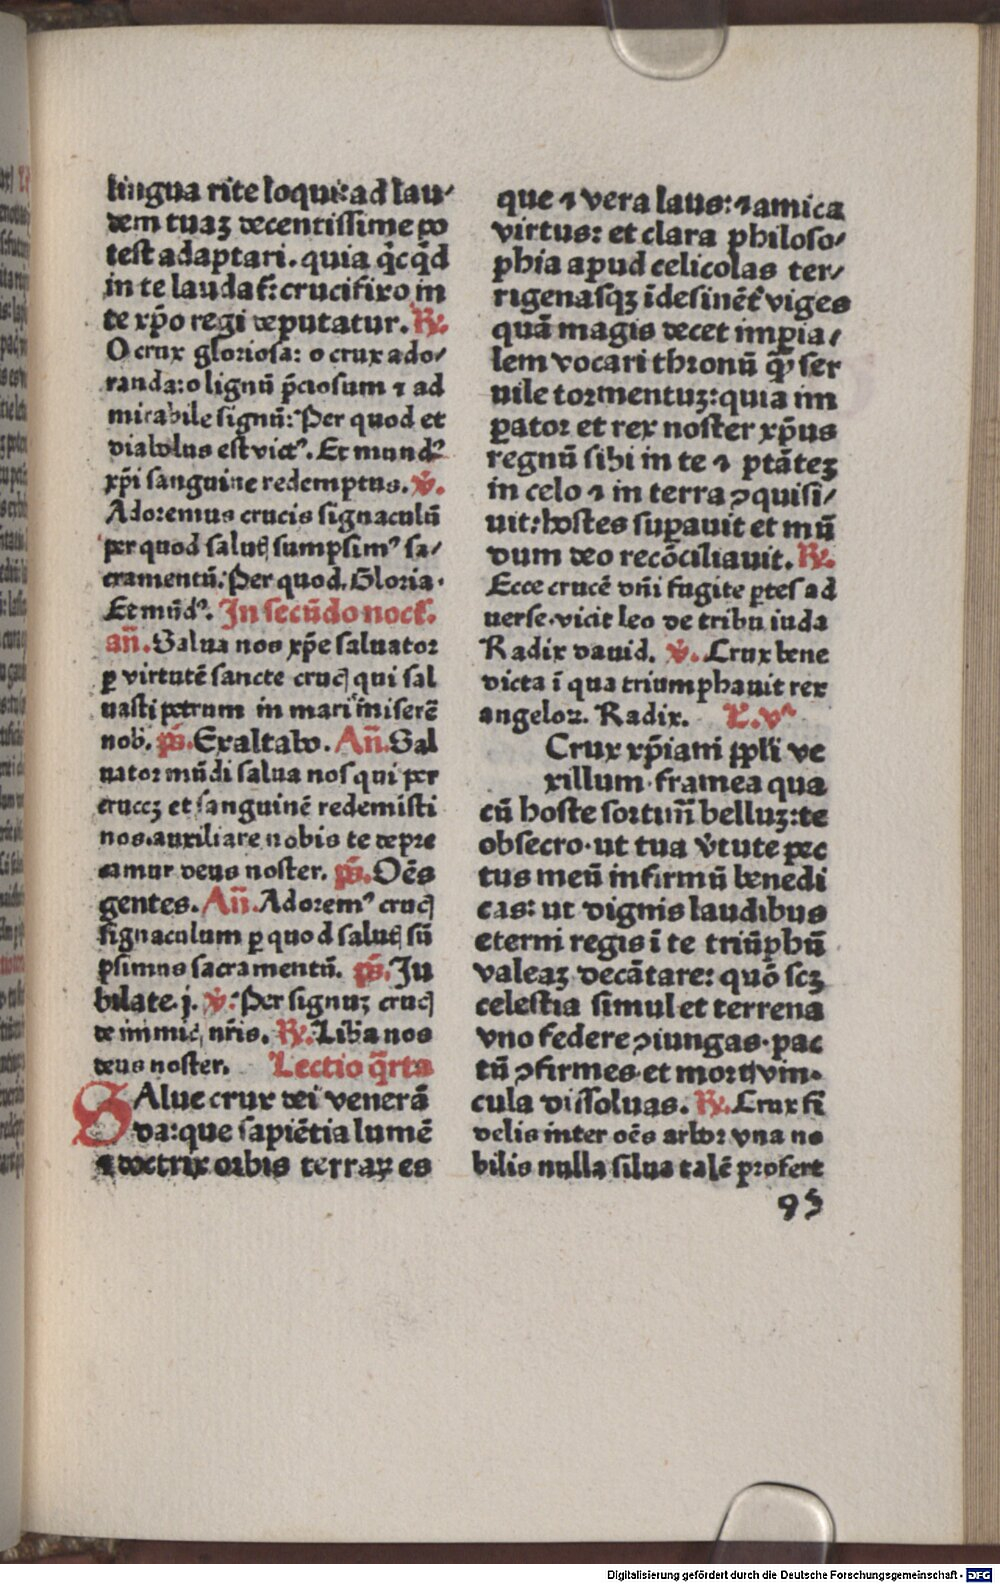 lingua rite loqui: ad lau⸗
dem tuaʒ decentissime po
test adaptari. quia q̇cq̇d
in te laudat᷑: crucifixo in
te xp̄o regi deputatur. ℟.
O crux gloriosa: o crux ado⸗
randa: o lignū p̄ciosum ⁊ ad
mirabile signū: Per quod et
diabolus est victꝰ. Et mundꝰ
xp̄i sanguine redemptus. ℣.
Adoremus crucis signaculū
per quod salutꝭ sumpsimꝰ sa⸗
cramentū. Per quod. Gloria.
Et mūdꝰ. In secūdo noct᷑.
an̄. Salua nos xp̄e saluator
ꝑ virtutē sancte crucꝭ qui sal
uasti petrum in mari miserē
nob̄. ps̄. Exaltabo. An̄. Sal
uator mūdi salua nos qui per
cruceʒ et sanguinē redemisti
nos. auxiliare nobis te depre
camur deus noster. ps̄. Oēs
gentes. An̄. Adoremꝰ crucꝭ
signaculum ꝑ quod salutꝭ sū
psimus sacramentū. ps̄. Ju
bilate. j. ℣. Per signuʒ crucꝭ
de inimic̄ nr̄is. ℟. Lib̄a nos
deus noster. Lectio q̄rta
SAlue crux dei venerā
da: que sapiētia lumē
⁊ doctrix orbis terraꝝ es
que ⁊ vera laus: ⁊ amica
virtus: et clara philoso⸗
phia apud celicolas ter⸗
rigenasqʒ īdesinēt᷑ viges
quā magis decet imperia⸗
lem vocari thronū q̄ꝫ ser
uile tormentuʒ: quia im
perator et rex noster xp̄us
regnū sibi in te ⁊ ptāteʒ
in celo ⁊ in terra ꝯquisi⸗
uit: hostes suꝑauit et mū
dum deo recōciliauit. ℟.
Ecce crucē dn̄i fugite ꝑtes ad
uerse. vicit leo de tribu iuda
Radix dauid. ℣. Crux bene
dicta ī qua triumphauit rex
angeloꝝ. Radix. L. vᵃ
Crux xp̄iani ppl̄i ve
xillum. framea qua
cū hoste fortum̄ belluʒ: te
obsecro. ut tua v̄tute pec
tus meū infirmū benedi
cas: ut dignis laudibus
eterni regis ī te triūphū
valeaʒ decātare: quō scʒ
celestia simul et terrena
vno federe ꝯiungas. pac
tū ꝯfirmes. et mortꝭ vin⸗
cula dissoluas. ℟. Crux fi
delis inter oēs arbor vna no
bilis nulla silua talē profert
95
Digitalisierung gefördert durch die Deutsche Forschungsgemeinschaft - DFG